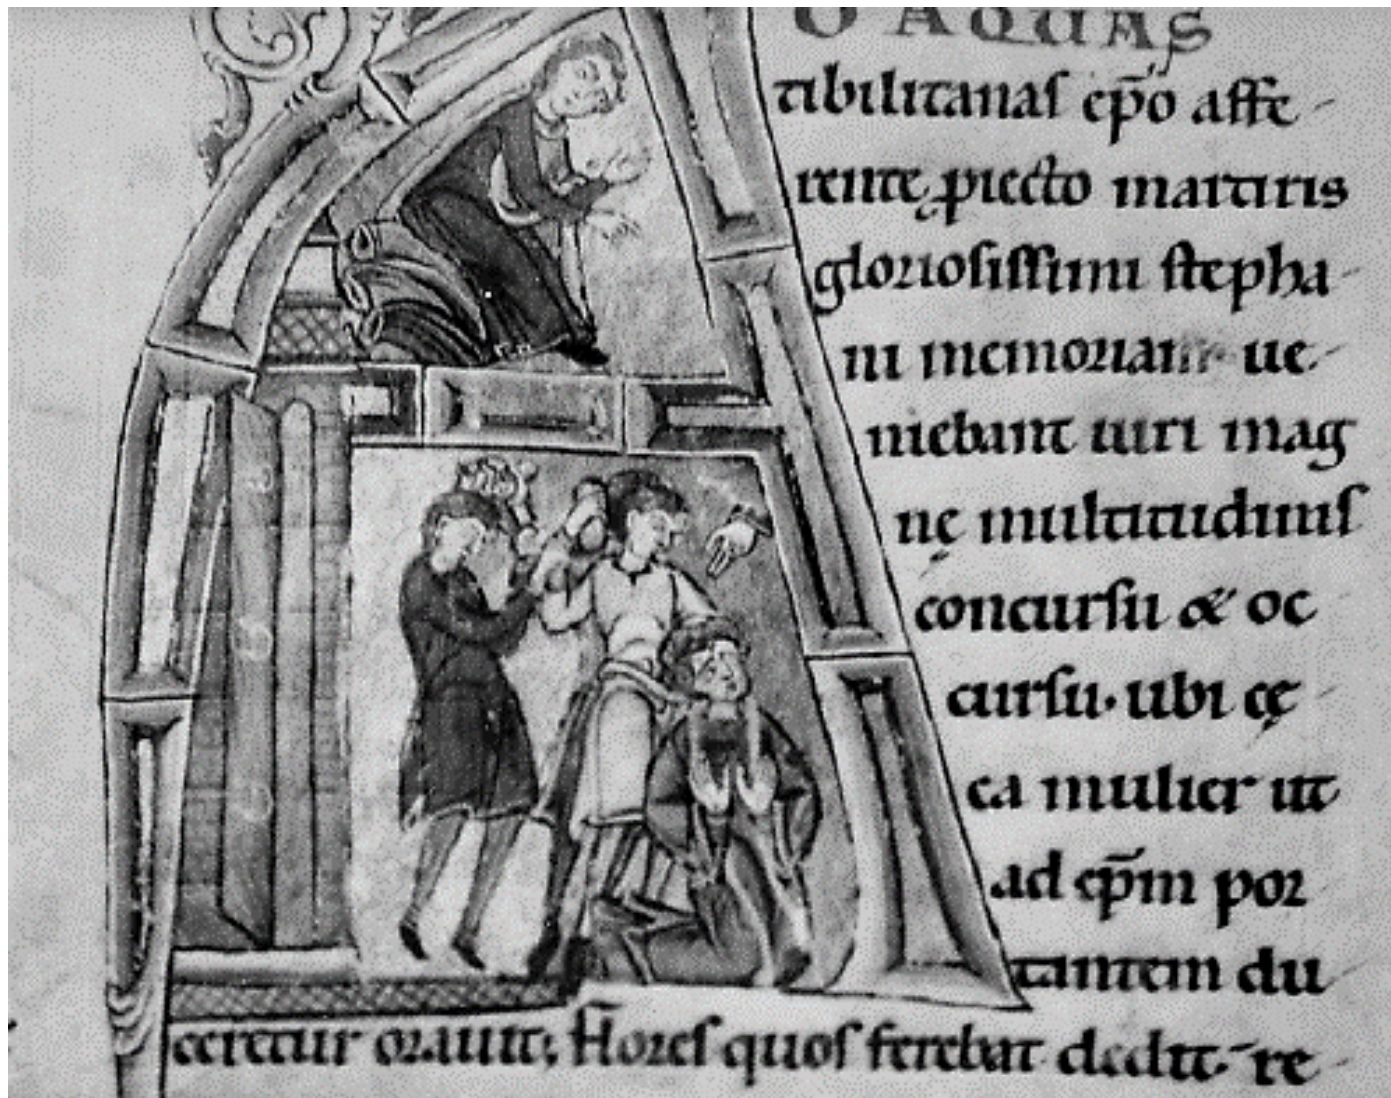 D AQUAS
tibilitanas ep̄o affe-
rente, p̄iecto martiris
gloriosissimi stepha-
ni memoriam ue-
niebant uiri mag
nę multitudinis
concursu & oc
cursu· ubi cę-
ca mulier ut
ad ep̄m por
tantem du
ceretur orauit; Flores quos ferebat dedit· re-